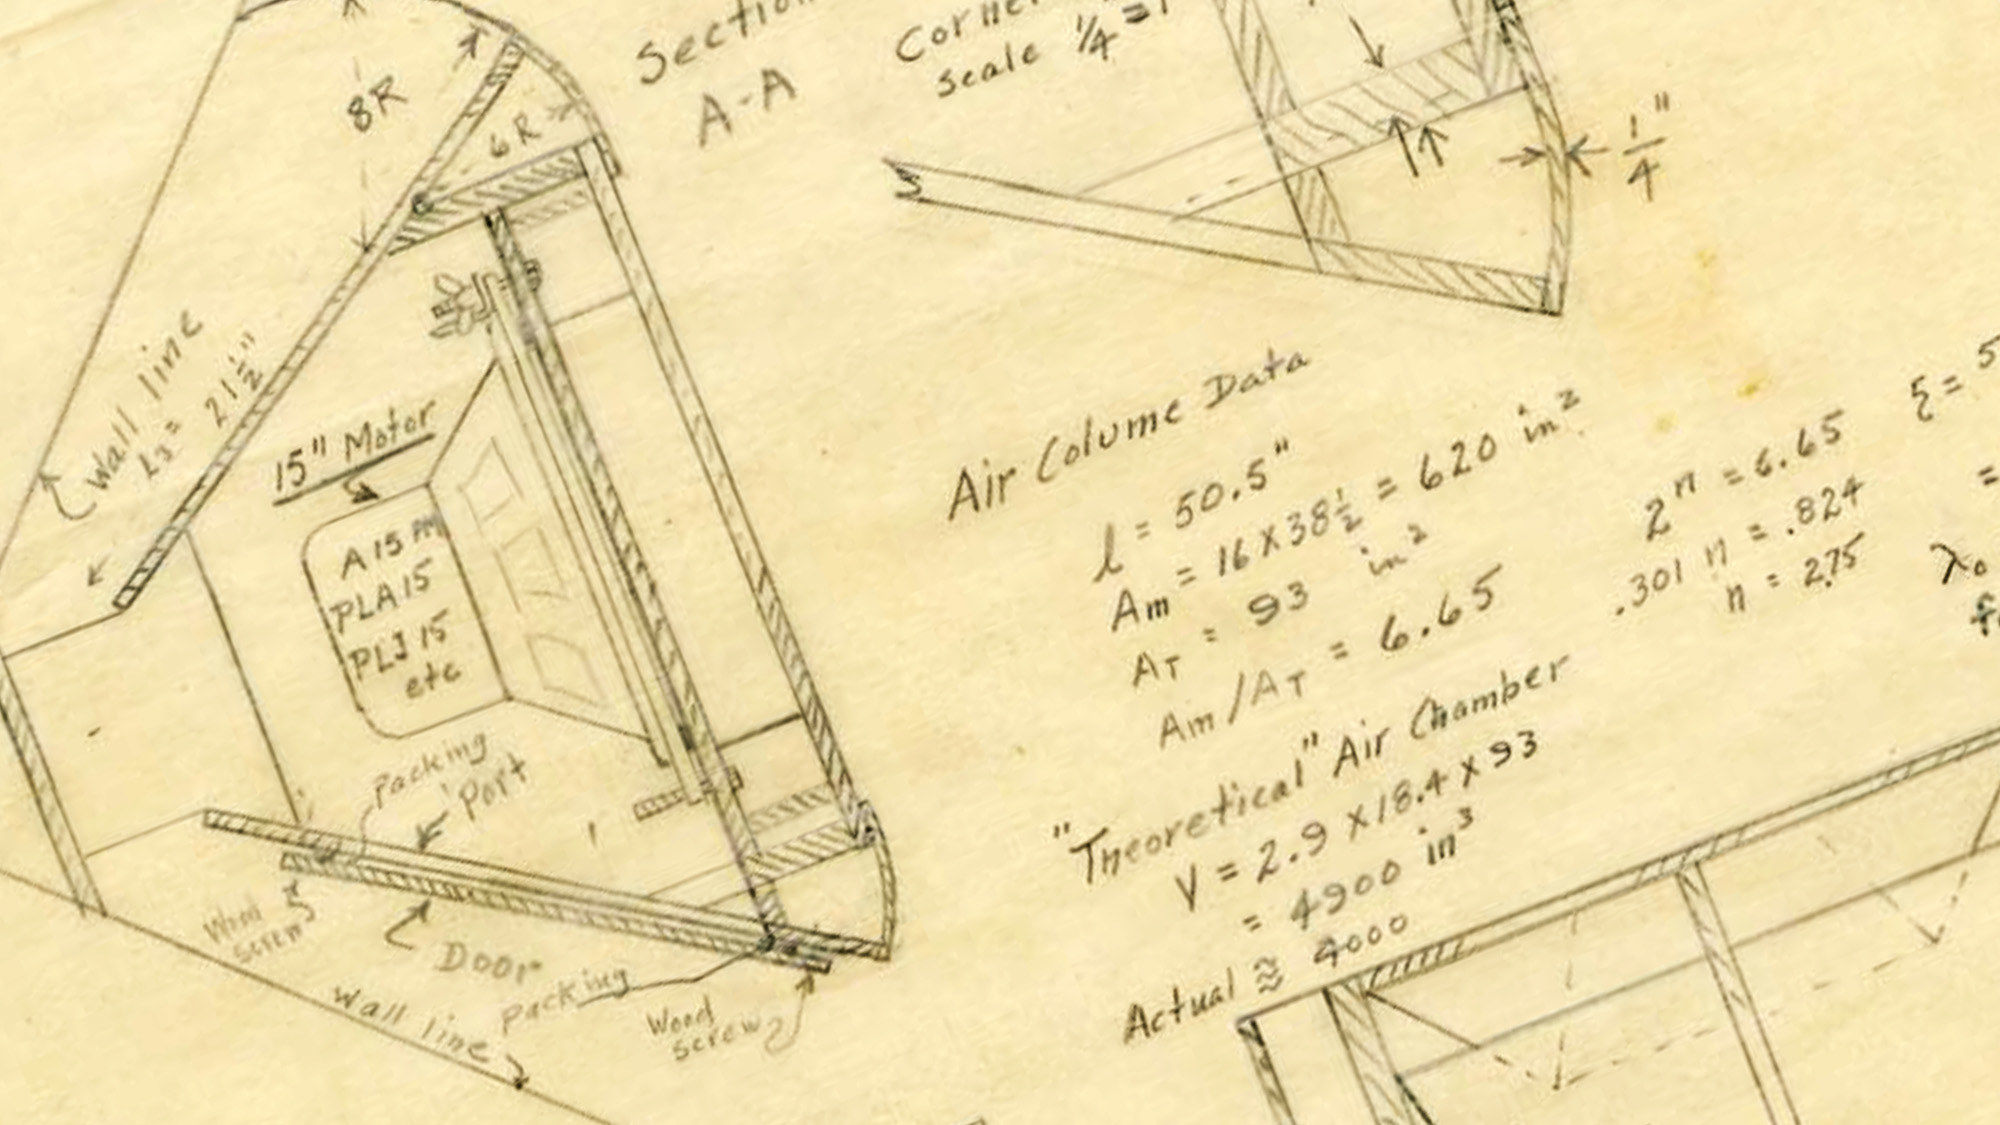 Section
A-A
Corne
scale 1/4 = 1
8R
6R
1/4"
Wall line
L3 = 21 1/2"
15" Motor
A 15 AM
PLA 15
PLJ 15
etc
packing
Port
Wood
screw
Door
packing
Wood
screw
Wall line
Air Column Data
l = 50.5"
Am = 16 X 38 1/2 = 620 in²
AT = 93 in²
Am/AT = 6.65
2ⁿ = 6.65
.301 n = .824
n = 2.75
ξ = 5
=
λ₀
f
"Theoretical" Air Chamber
V = 2.9 X 18.4 X 93
= 4900 in³
Actual ≈ 4000